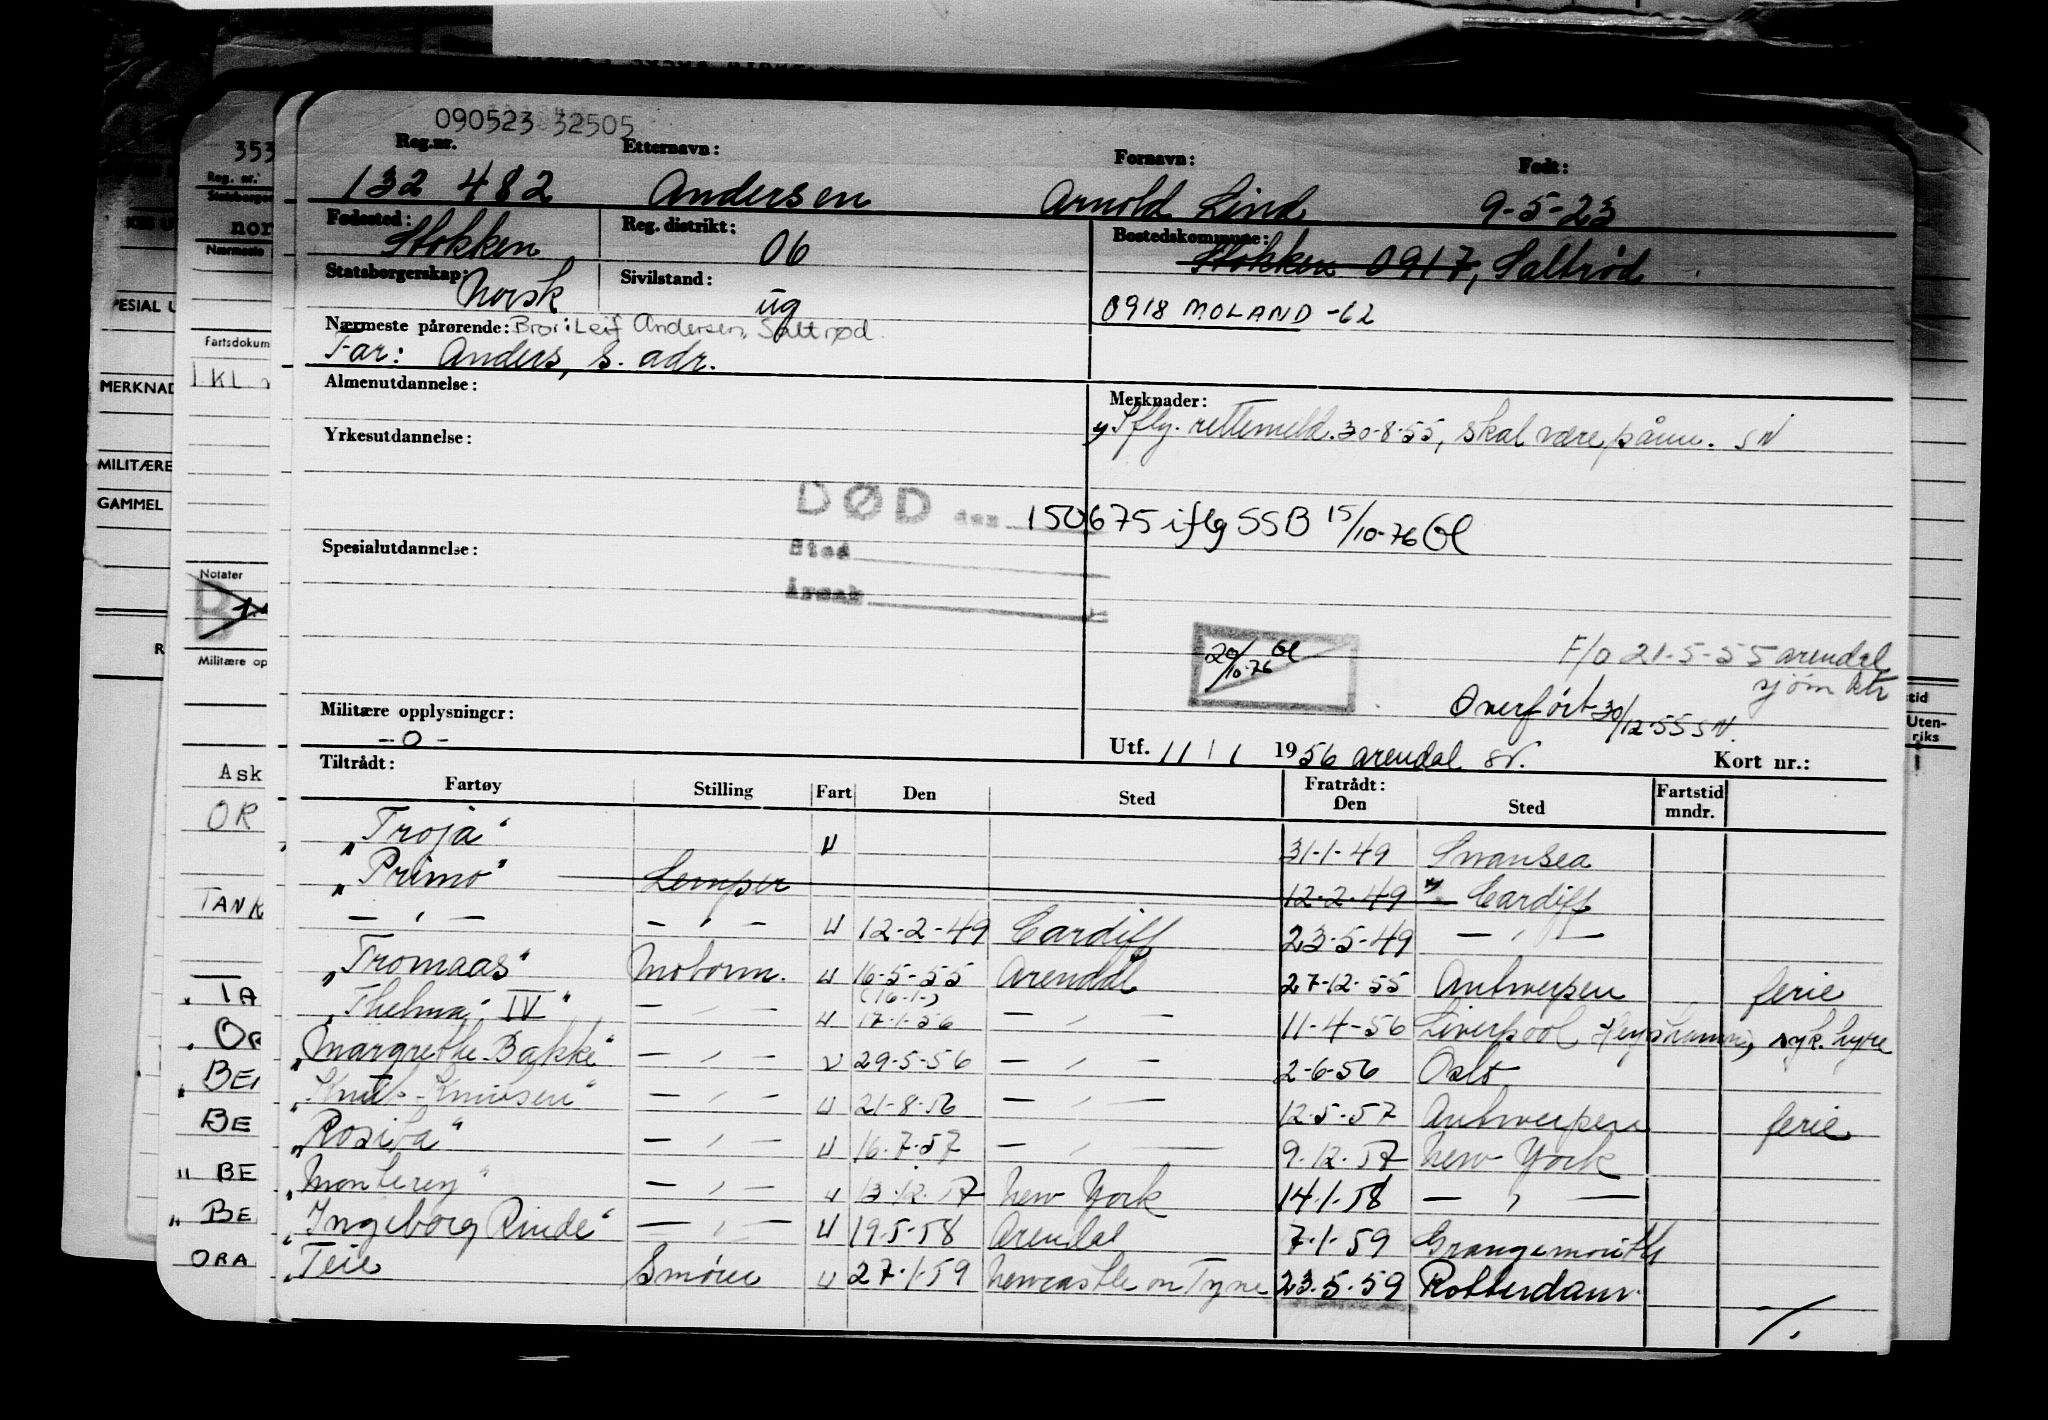 090523 32505
Reg.nr. Etternavn: Fornavn: Født:
132 482 Andersen Arnold Lind 9-5-23
Fødested: Stokken Reg. distrikt: 06 Bostedskommune: Stokken 0917, Saltrød
Statsborgerskap: Norsk Sivilstand: ug 0918 MOLAND -62
Nærmeste pårørende: Bror: Leif Andersen, Saltrød.
Far: Anders, s. adr.
Almenutdannelse: Merknader:
Iflg. rettemeld. 30-8-55, skal være påm. SN
Yrkesutdannelse:
DØD den 150675 iflg SSB 15/10-76 Gl
Sted
Spesialutdannelse:
Årsak
20/10-76 Gl
F/o 21-5-55 Arendal
sjøm ktr
Overført 30/12-55 SN.
Militære opplysninger:
-0-
Utf. 11 / 1 1956 Arendal Kort nr.:
Tiltrådt: Fratrådt:
Fartøy Stilling Fart Den Sted Den Sted Fartstid mndr.
"Troja" U 31-1-49 Swansea
"Primo" Lemper 12-2-49 Cardiff
— " — — " — U 12-2-49 Cardiff 23-5-49 — " —
"Tromaas" Motorm. U 16-5-55 Arendal 27-12-55 Antwerpen ferie
(16-1-)
"Thelma IV" — " — U 17-1-56 — " — 11-4-56 Liverpool syk. hyre
"Margrethe Bakke" — " — U 29-5-56 — " — 2-6-56 Oslo
"Knut Knutsen" — " — U 21-8-56 — " — 12-5-57 Antwerpen ferie
"Rosita" — " — U 16.7.57 — " — 9.12.57 New York
"Monterey" — " — U 13.12.57 New York 14.1.58 — " —
"Ingeborg Rinde" — " — U 19.5.58 Arendal 7.1.59 Grangemouth
"Teie Smører U 27.1.59 Newcastle on Tyne 23.5.59 Rotterdam
./.
353
Reg. nr.
Statsborger
nor
Nærmeste
Fartsdokum
1 KL
Notater
B
Militære op
Ask
OR
TANK
" TA
" OR
" BE
BE
" BE
" BE
ORA
SPESIAL U
MERKNAD
MILITÆRE
GAMMEL
R
tid
Uten-
riks